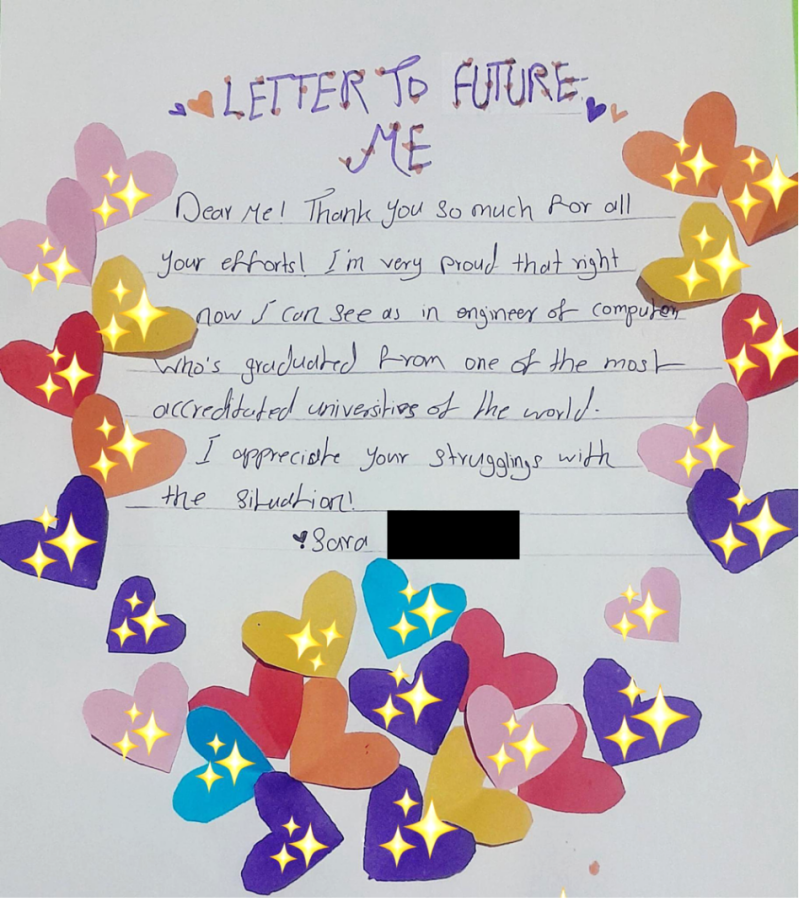 LETTER TO FUTURE
ME
Dear Me! Thank you so much for all
your efforts! I'm very proud that right
now I can see as in engineer of computer
who's graduated from one of the most
accreditated universities of the world.
I appreciate your strugglings with
the situation!
Sara